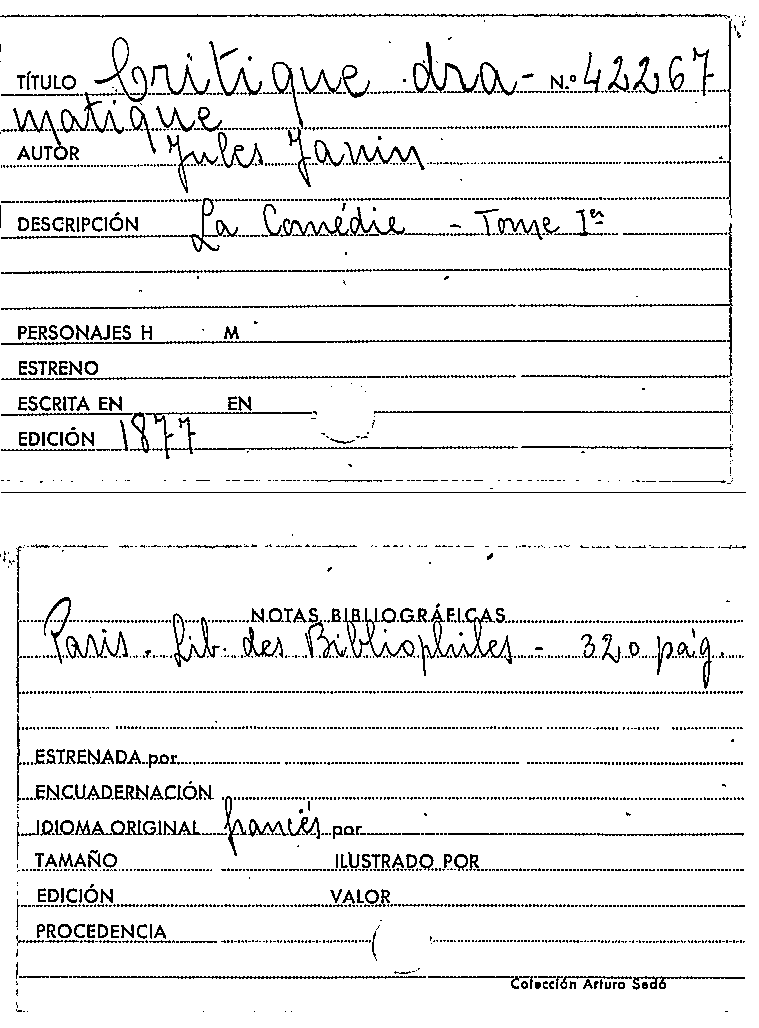 TÍTULO Critique dra- N.º 42267
matique
AUTOR Jules Janin
DESCRIPCIÓN La Comédie - Tome Ier
PERSONAJES H M
ESTRENO
ESCRITA EN EN
EDICIÓN 1877
NOTAS BIBLIOGRÁFICAS
Paris. Lib. des Bibliophiles - 320 pág.
ESTRENADA por
ENCUADERNACIÓN
IDIOMA ORIGINAL francés por
TAMAÑO ILUSTRADO POR
EDICIÓN VALOR
PROCEDENCIA
Colección Arturo Sedó